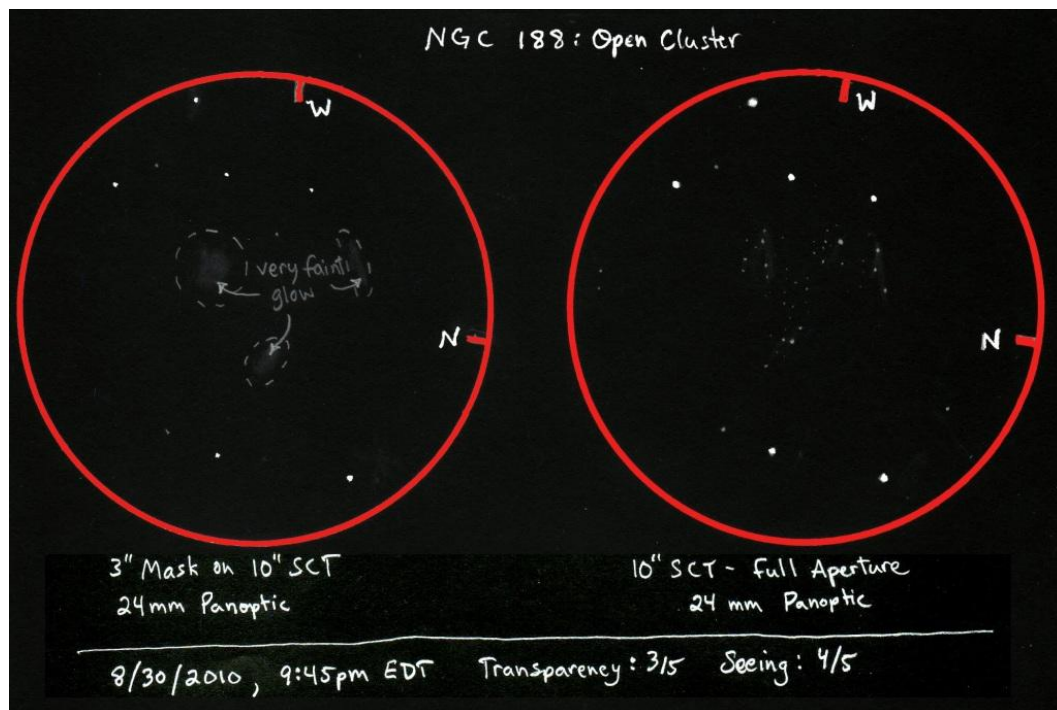 NGC 188: Open Cluster
W
N
very faint
glow
3" Mask on 10" SCT
24mm Panoptic
W
N
10" SCT - Full Aperture
24 mm Panoptic
8/30/2010, 9:45pm EDT Transparency: 3/5 Seeing: 4/5